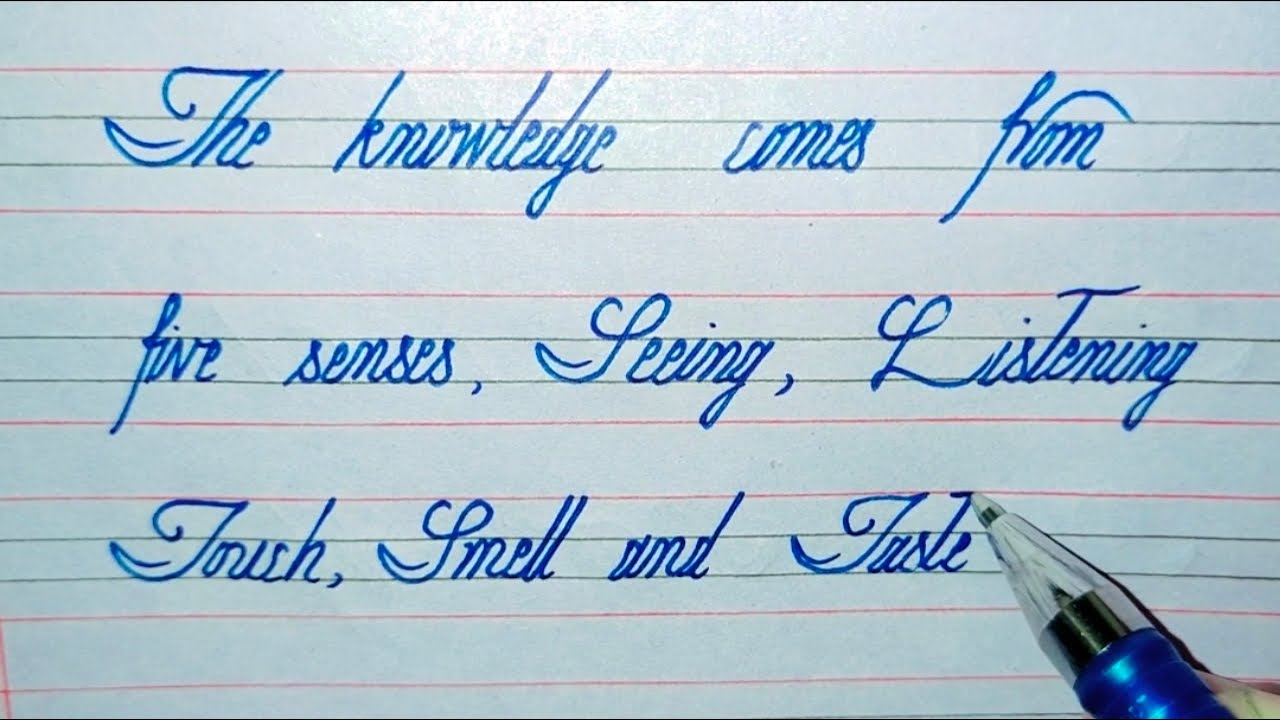 The knowledge comes from
five senses, Seeing, Listening
Touch, Smell and Taste